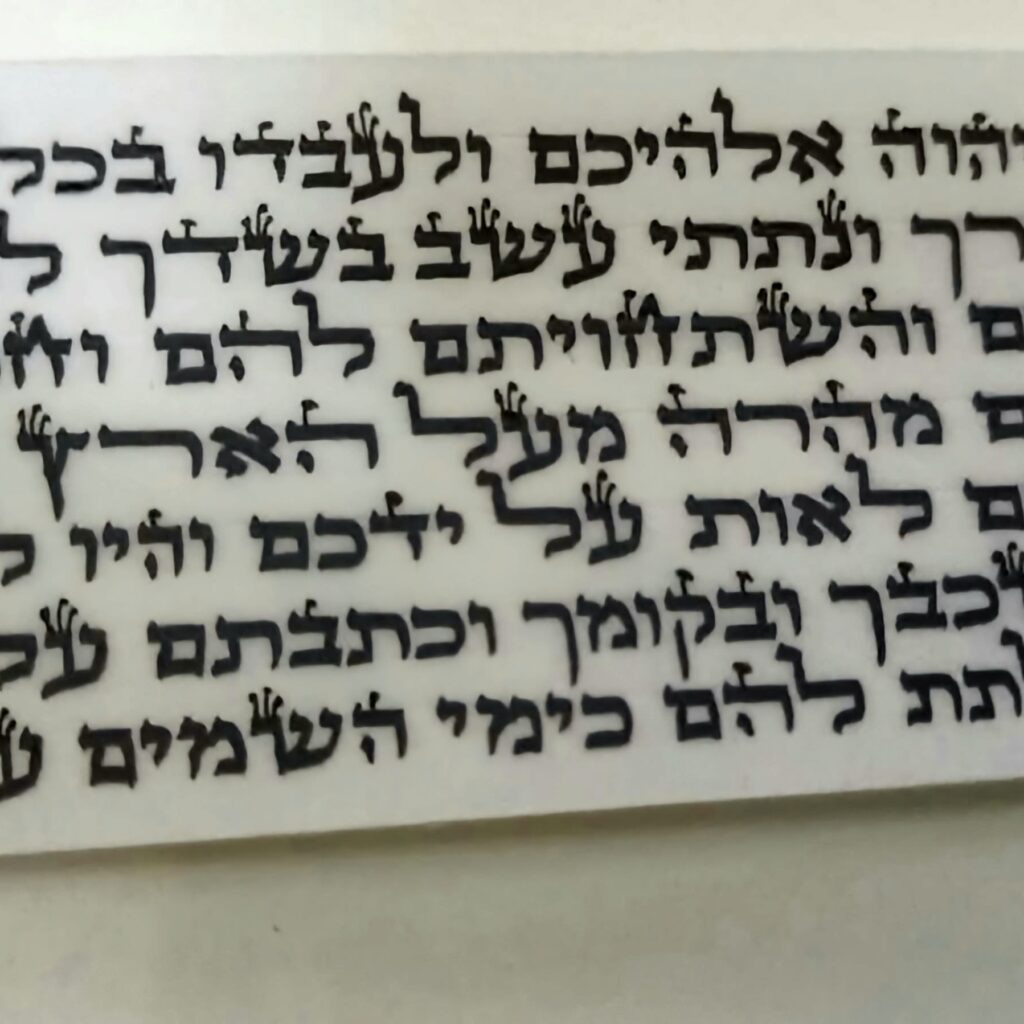 יהוה אלהיכם ולעבדו בכל
ונתתי עשב בשדך
והשתחויתם להם
מהרה מעל הארץ
לאות על ידכם והיו
ובקומך וכתבתם על
להם כימי השמים